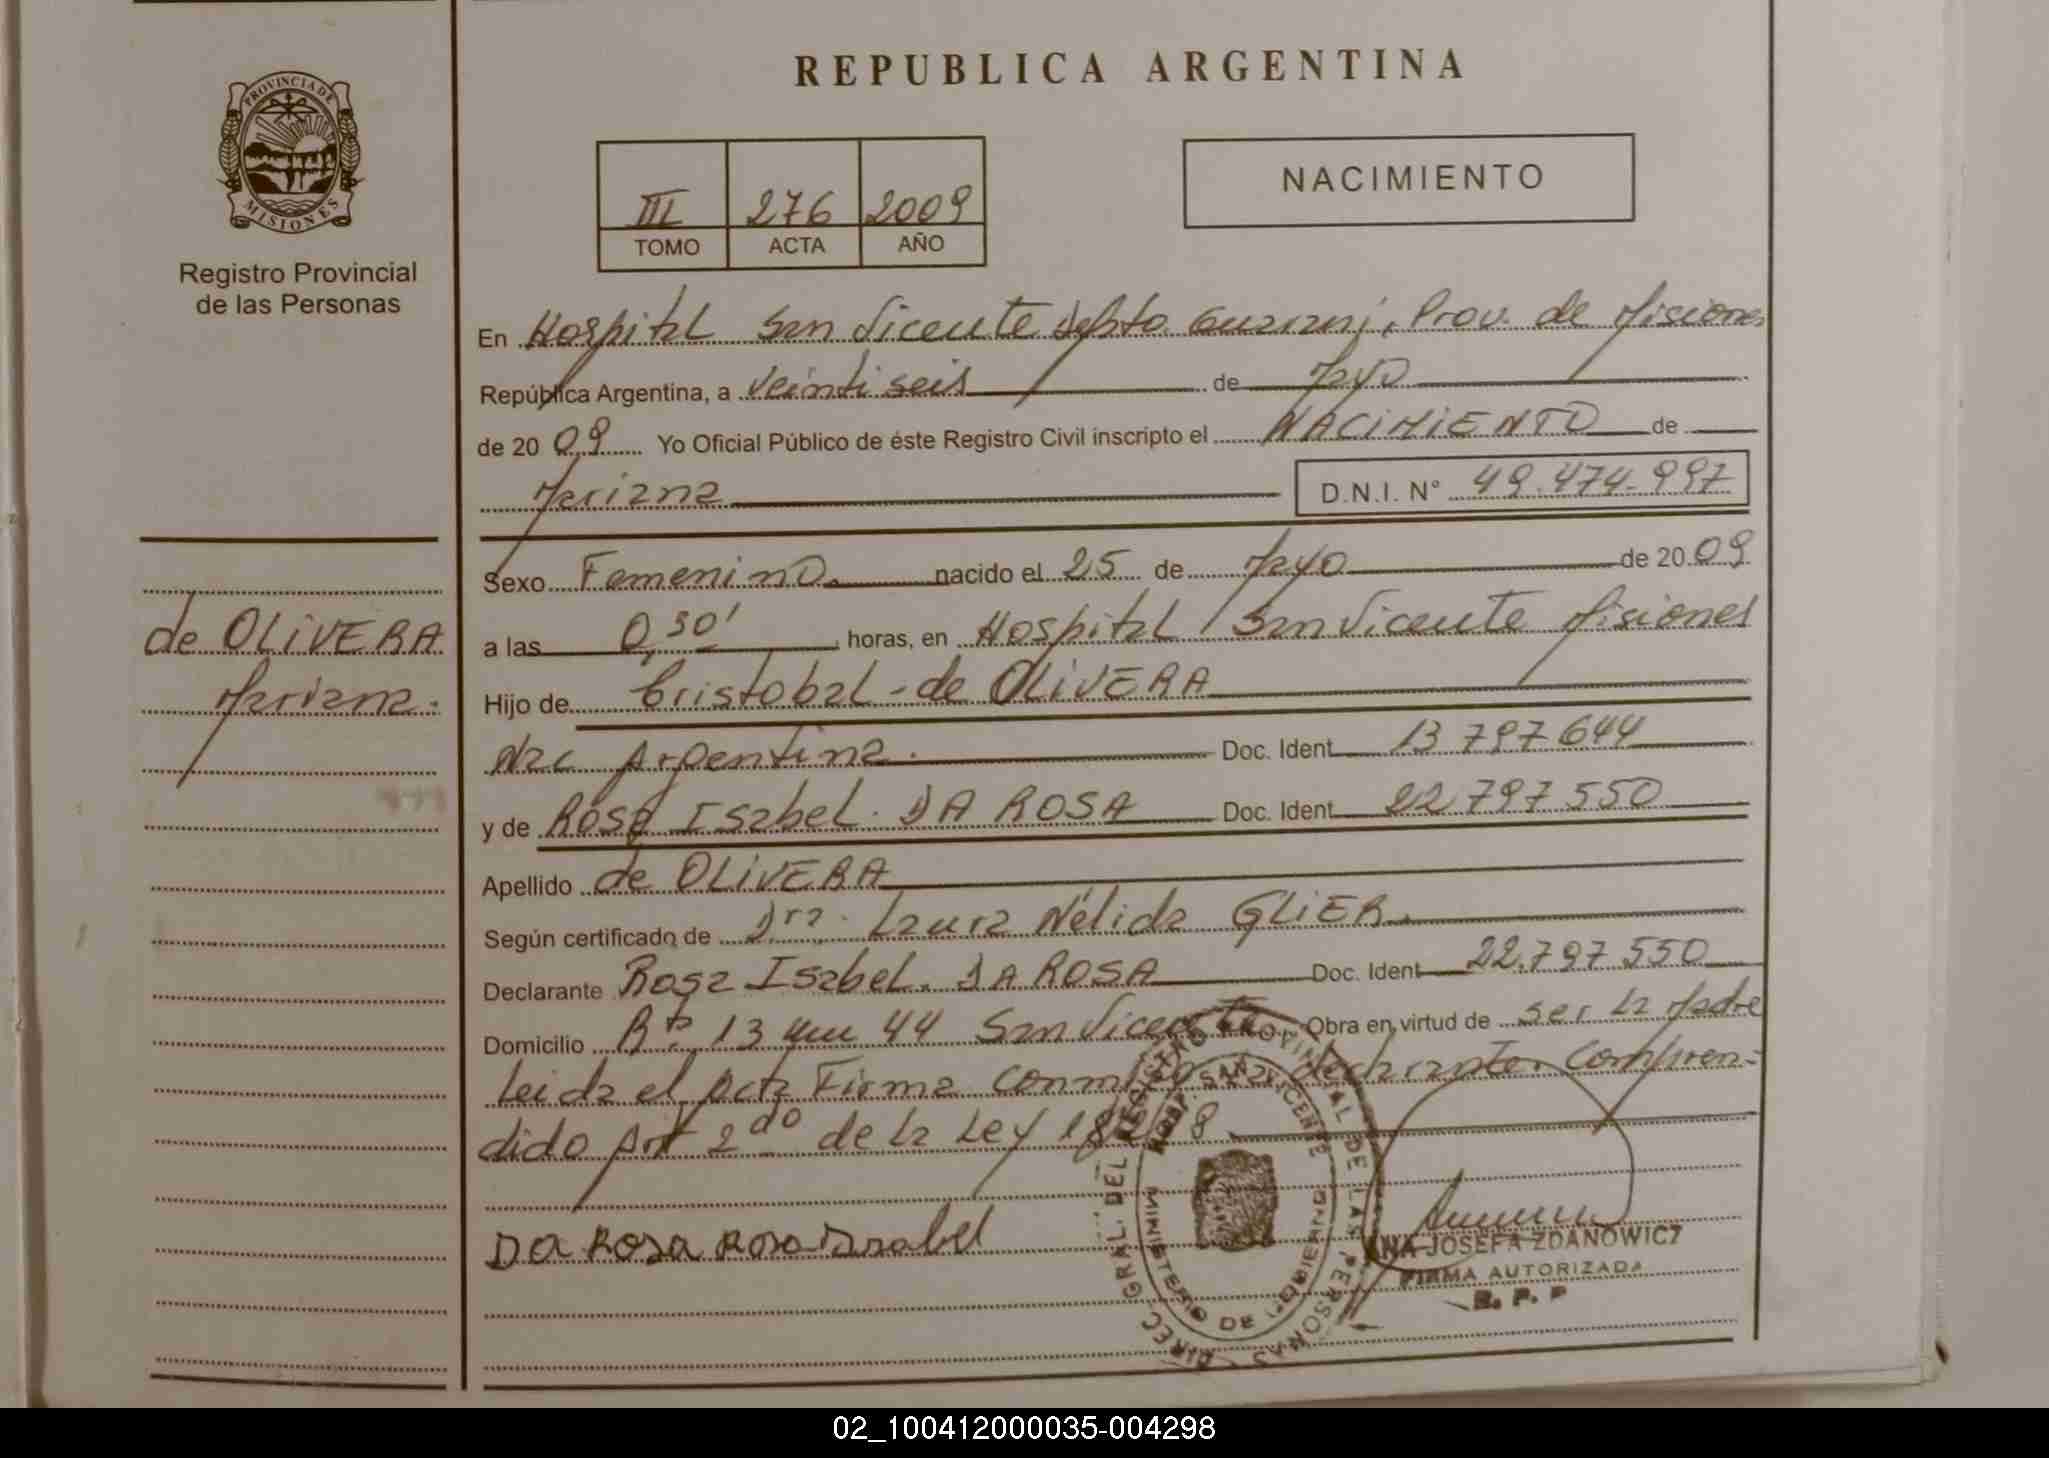 REPUBLICA ARGENTINA
PROVINCIA DE
MISIONES
Registro Provincial
de las Personas
III 276 2009
TOMO ACTA AÑO
NACIMIENTO
En Hospital San Vicente Depto. Guarani, Prov. de Misiones
República Argentina, a veintiseis de Mayo
de 20 09 Yo Oficial Público de éste Registro Civil inscripto el NACIMIENTO de
Mariana D.N.I. N° 49.474.997
Sexo Femenino nacido el 25 de Mayo de 20 09
a las 0,30' horas, en Hospital San Vicente Misiones
Hijo de Cristobal de OLIVERA
Nac Argentina. Doc. Ident 13 797 644
y de Rosa Isabel DA ROSA Doc. Ident 22 797 550
Apellido de OLIVERA
Según certificado de Dra. Laura Nélida GLIER.
Declarante Rosa Isabel DA ROSA Doc. Ident 22.797 550
Domicilio R. 13 km 44 San Vicente Obra en virtud de ser la Madre
Leida el Acta Firma conmigo la declarante. Compren-
dido Art 2do de la Ley
DA Rosa Rosa Isabel
de OLIVERA
Mariana.
DIREC. GRAL. DEL REGISTRO PROVINCIAL DE LAS PERSONAS
HOSP. SAN VICENTE
MINISTERIO DE GOBIERNO
JOSEFA ZDANOWICZ
FIRMA AUTORIZADA
R. P. P
02_100412000035-004298